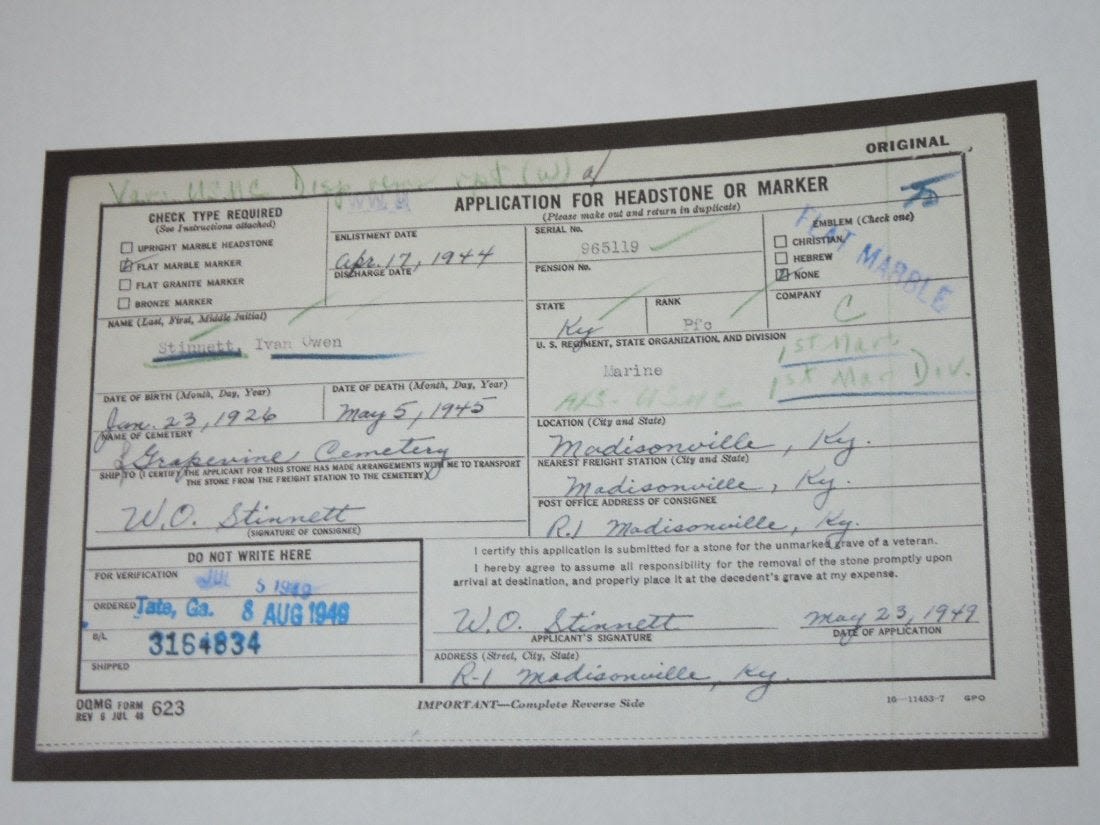 ORIGINAL
USMC
APPLICATION FOR HEADSTONE OR MARKER
(Please make out and return in duplicate)
CHECK TYPE REQUIRED
(See Instructions attached)
UPRIGHT MARBLE HEADSTONE
FLAT MARBLE MARKER
FLAT GRANITE MARKER
BRONZE MARKER
ENLISTMENT DATE
Apr. 17, 1944
DISCHARGE DATE
SERIAL No.
965119
PENSION No.
EMBLEM (Check one)
CHRISTIAN
HEBREW
NONE
FLAT MARBLE
STATE
Ky
RANK
Pfc
COMPANY
C
NAME (Last, First, Middle Initial)
Stinnett, Ivan Owen
U. S. REGIMENT, STATE ORGANIZATION, AND DIVISION
Marine
1st Mar
1st Mar Div.
USMC
DATE OF BIRTH (Month, Day, Year)
Jan. 23, 1926
DATE OF DEATH (Month, Day, Year)
May 5, 1945
NAME OF CEMETERY
Grapevine Cemetery
LOCATION (City and State)
Madisonville, Ky.
SHIP TO (I CERTIFY THE APPLICANT FOR THIS STONE HAS MADE ARRANGEMENTS WITH ME TO TRANSPORT
THE STONE FROM THE FREIGHT STATION TO THE CEMETERY)
W.O. Stinnett
(SIGNATURE OF CONSIGNEE)
NEAREST FREIGHT STATION (City and State)
Madisonville, Ky.
POST OFFICE ADDRESS OF CONSIGNEE
R.1 Madisonville, Ky.
DO NOT WRITE HERE
FOR VERIFICATION
JUL 5 1949
ORDERED Tate, Ga. 8 AUG 1949
B/L
3164834
SHIPPED
I certify this application is submitted for a stone for the unmarked grave of a veteran.
I hereby agree to assume all responsibility for the removal of the stone promptly upon
arrival at destination, and properly place it at the decedent's grave at my expense.
W.O. Stinnett May 23, 1949
APPLICANT'S SIGNATURE DATE OF APPLICATION
ADDRESS (Street, City, State)
R-1 Madisonville, Ky.
OQMG FORM 623
REV 6 JUL 48
IMPORTANT—Complete Reverse Side
16—11453-7 GPO